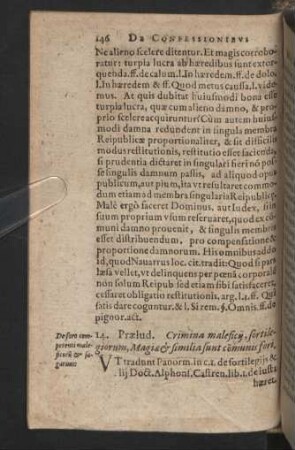 146 DE CONFESSIONIBVS
Ne alieno scelere ditentur. Et magis corrobo-
ratur: turpia lucra ab hæredibus sunt extor-
quenda. ff. de calum. l. In hæredem. ff. de dolo,
l. In hæredem & ff. Quod metus caussa. l. 1. vide-
mus. At quis dubitat huiusmodi bona esse
turpia lucra, quæ cum alieno damno, & pro-
prio scelere acquiruntur? Cùm autem huius-
modi damna redundent in singula membra
Reipublicæ proportionaliter, & sit difficilis
modus restitutionis, restitutio esset facienda,
si prudentia dictaret in singulari fieri nō pos-
se singulis damnum passis, ad aliquod opus
publicum, aut pium, ita vt resultaret commo-
dum etiam ad membra singularia Reipublicę.
Malè ergò faceret Dominus, aut Iudex, si in
suum proprium vsum reseruaret, quod ex cō-
muni damno prouenit, & singulis membris
esset distribuendum, pro compensatione &
proportione damnorum. His omnibus addo
id, quod Nauarrus loc. cit. tradit: Quod si pars
læsa vellet, vt delinquens per pœnā corporalē
non solum Reipub sed etiam sibi satisfaceret,
cessaret obligatio restitutionis. arg. l. 4. ff. Qui
satis dare cogantur. & l. Si rem. §. Omnis. ff. de
pignor. act.
De foro com-
petenti male-
ficorū & sa-
garum.
14. Prælud. Crimina maleficij, sortile-
giorum, Magiæ & similia sunt cōmunis fori.
VT tradunt Panorm. in c. 1. de sortilegijs &
alij Doct. Alphons. Castren. lib. 1. de iusta
hæret.